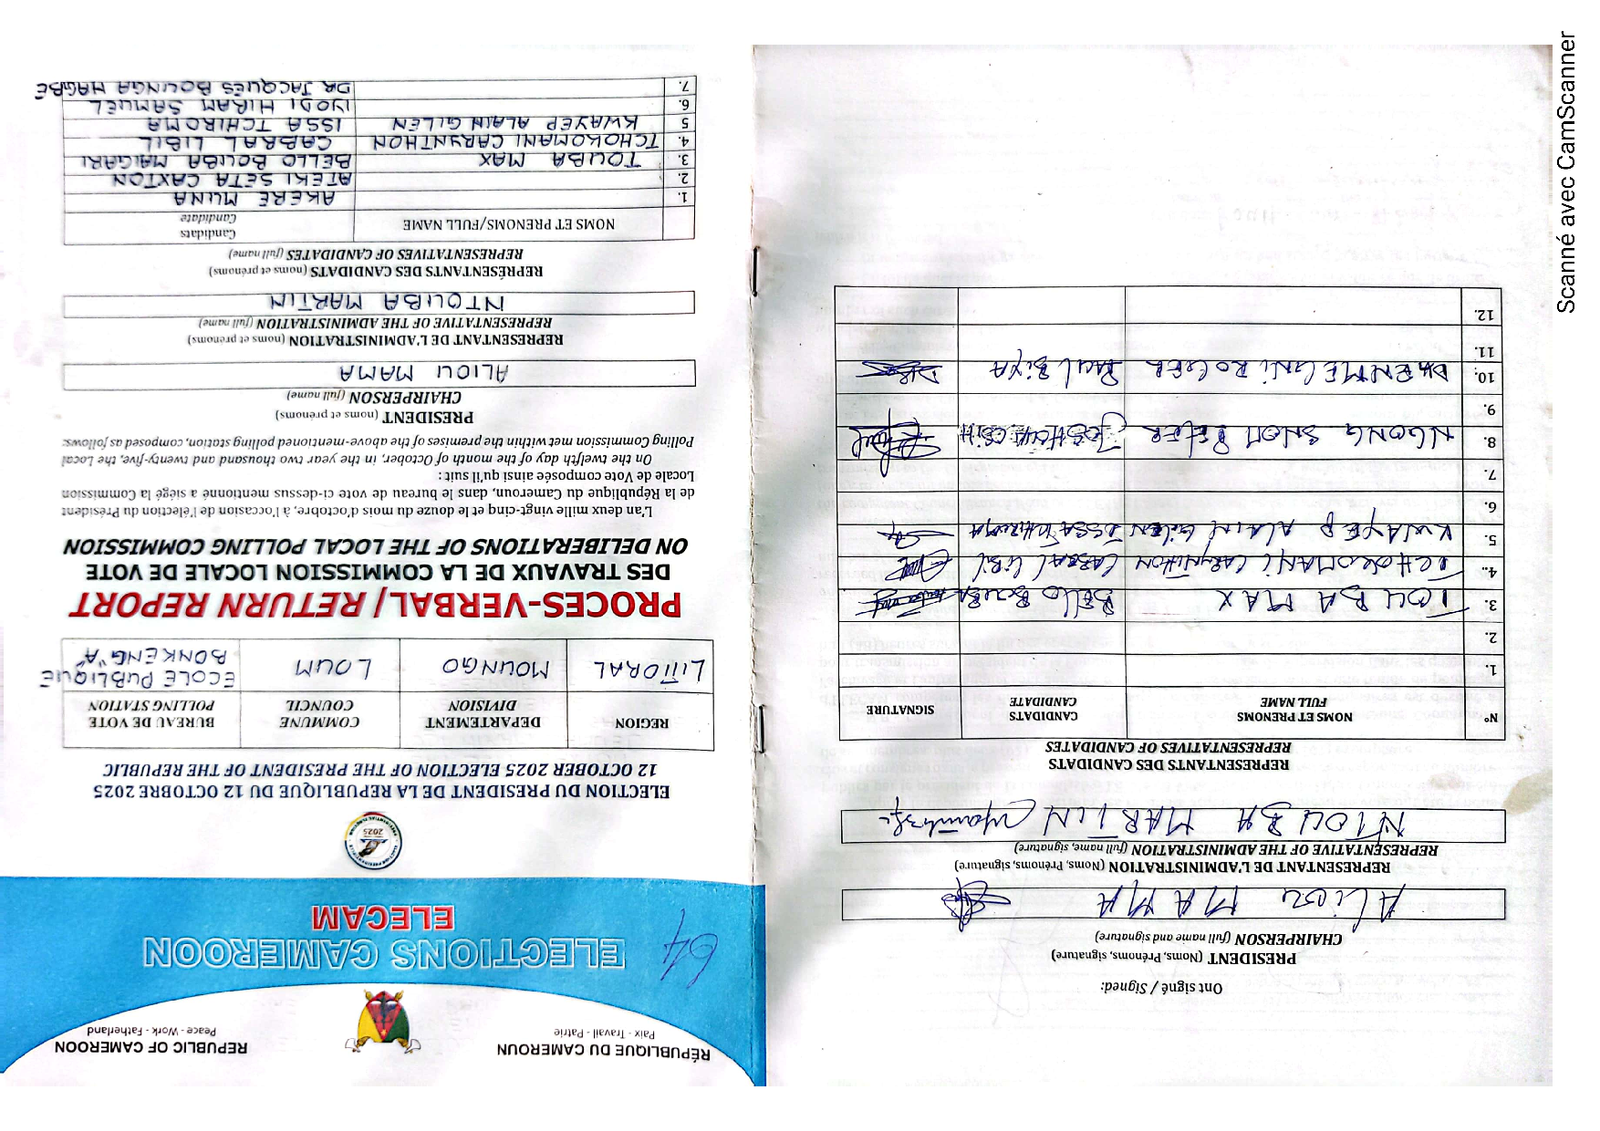 RÉPUBLIQUE DU CAMEROUN
Paix - Travail - Patrie
REPUBLIC OF CAMEROON
Peace - Work - Fatherland
64
ELECTIONS CAMEROON
ELECAM
ELECTION DU PRESIDENT DE LA REPUBLIQUE DU 12 OCTOBRE 2025
12 OCTOBER 2025 ELECTION OF THE PRESIDENT OF THE REPUBLIC
REGION
DEPARTEMENT
DIVISION
COMMUNE
COUNCIL
BUREAU DE VOTE
POLLING STATION
LITTORAL
MOUNGO
LOUM
ECOLE PUBLIQUE
BONKENG "A"
PROCES-VERBAL / RETURN REPORT
DES TRAVAUX DE LA COMMISSION LOCALE DE VOTE
ON DELIBERATIONS OF THE LOCAL POLLING COMMISSION
L'an deux mille vingt-cinq et le douze du mois d'octobre, à l'occasion de l'élection du Président
de la République du Cameroun, dans le bureau de vote ci-dessus mentionné a siégé la Commission
Locale de Vote composée ainsi qu'il suit :
On the twelfth day of the month of October, in the year two thousand and twenty-five, the Local
Polling Commission met within the premises of the above-mentioned polling station, composed as follows:
PRESIDENT (noms et prénoms)
CHAIRPERSON (full name)
ALIOU MAMA
REPRESENTANT DE L'ADMINISTRATION (noms et prénoms)
REPRESENTATIVE OF THE ADMINISTRATION (full name)
NTOUBA MARTIN
REPRÉSENTANTS DES CANDIDATS (noms et prénoms)
REPRESENTATIVES OF CANDIDATES (full name)
NOMS ET PRENOMS/FULL NAME
Candidats
Candidate
1. AKERE MUNA
2. ATEKI SETA CAXTON
3. TOUBA MAX BELLO BOUBA MAIGARI
4. TCHOKOMANI CARYNTHON CABRAL LIBIL
5 KWAYEP ALAIN GILEN ISSA TCHIROMA
6. IYODI HIRAM SAMUEL
7. DR JACQUES BOUNGA HAGBE
Ont signé / Signed:
PRESIDENT (Noms, Prénoms, signature)
CHAIRPERSON (full name and signature)
ALIOU MAMA
REPRESENTANT DE L'ADMINISTRATION (Noms, Prénoms, signature)
REPRESENTATIVE OF THE ADMINISTRATION (full name, signature)
NTOUBA MARTIN
REPRESENTANTS DES CANDIDATS
REPRESENTATIVES OF CANDIDATES
N°
NOMS ET PRENOMS
FULL NAME
CANDIDATS
CANDIDATE
SIGNATURE
1.
2.
3. TOUBA MAX Bello Bouba
4. TCHOKOMANI CARYNTHON CABRAL LIBIL
5. KWAYEP ALAIN GILEN ISSA TCHIROMA
6.
7.
8. NGONG SNOM PETER JOSHUA OSIH
9.
10. ROGER PAUL BIYA
11.
12.
Scanné avec CamScanner